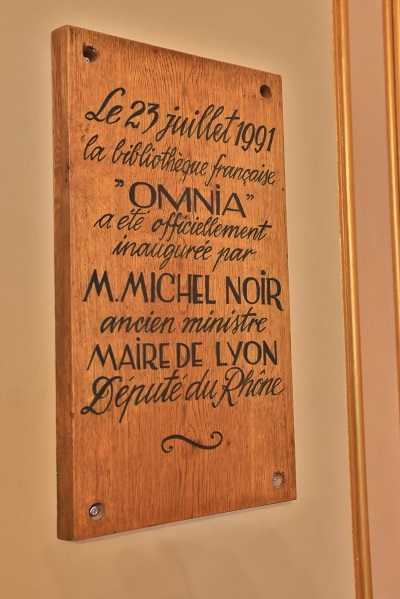 Le 23 juillet 1991
la bibliothèque française
"OMNIA"
a été officiellement
inaugurée par
M. MICHEL NOIR
ancien ministre
MAIRE DE LYON
Député du Rhône